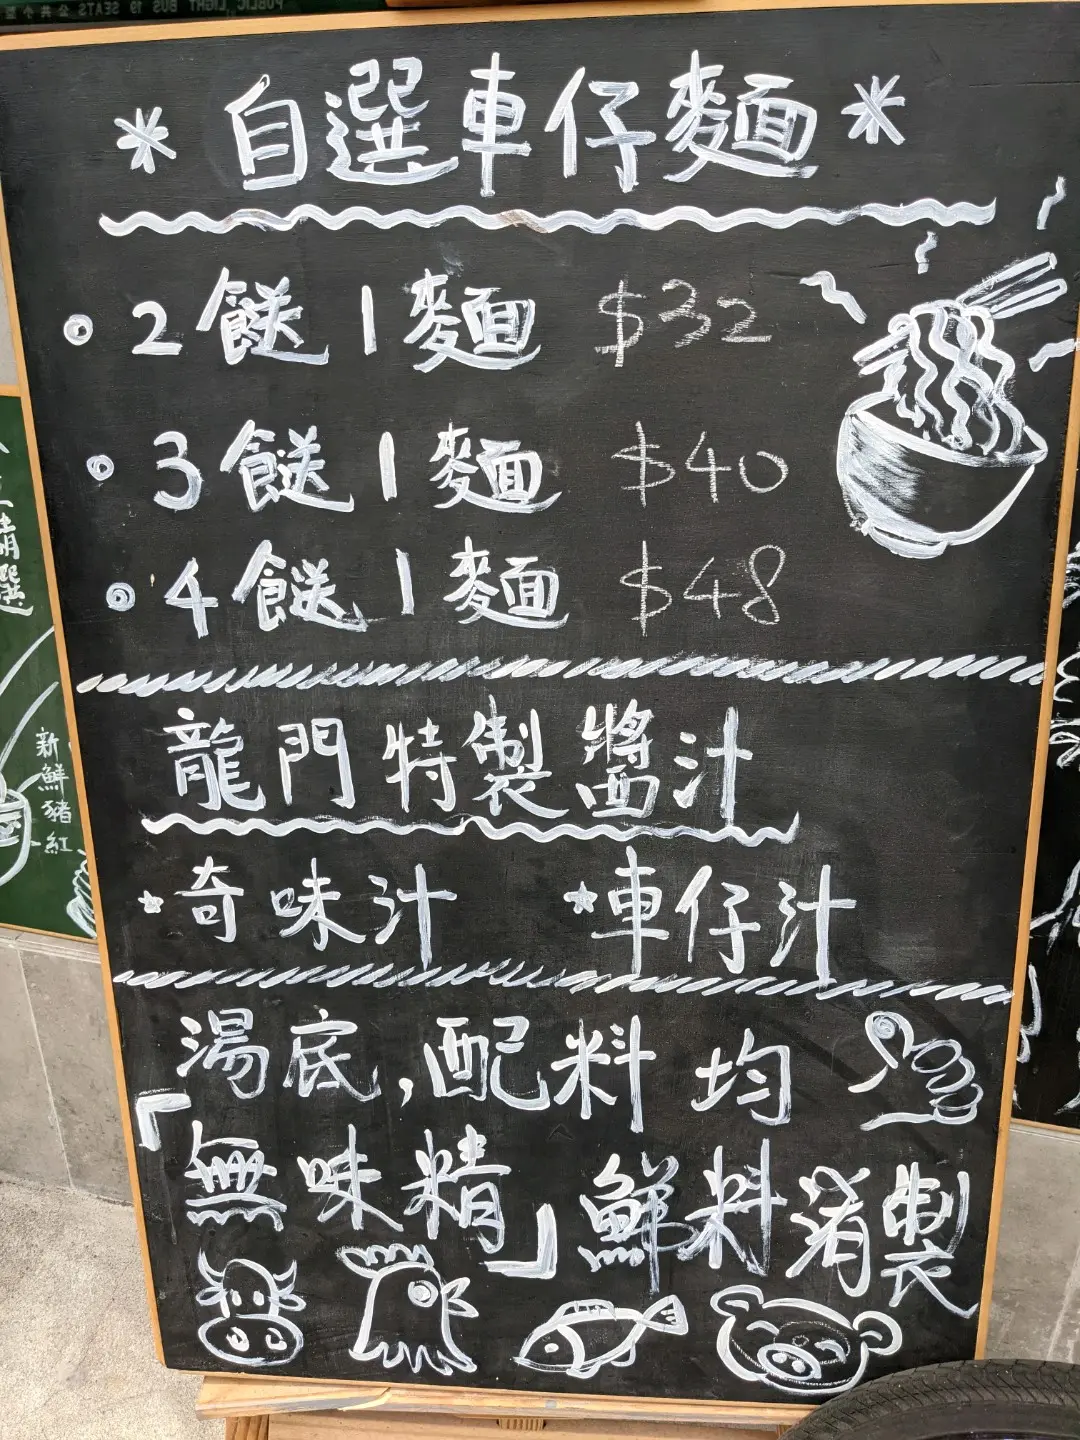 PUBLIC LIGHT BUS 19 SEATS 公共小型
*自選車仔麵*
2餸1麵 $32
3餸1麵 $40
4餸1麵 $48
龍門特製醬汁
奇味汁 車仔汁
湯底,配料均
「無味精」鮮料淆製
精選
新鮮豬紅